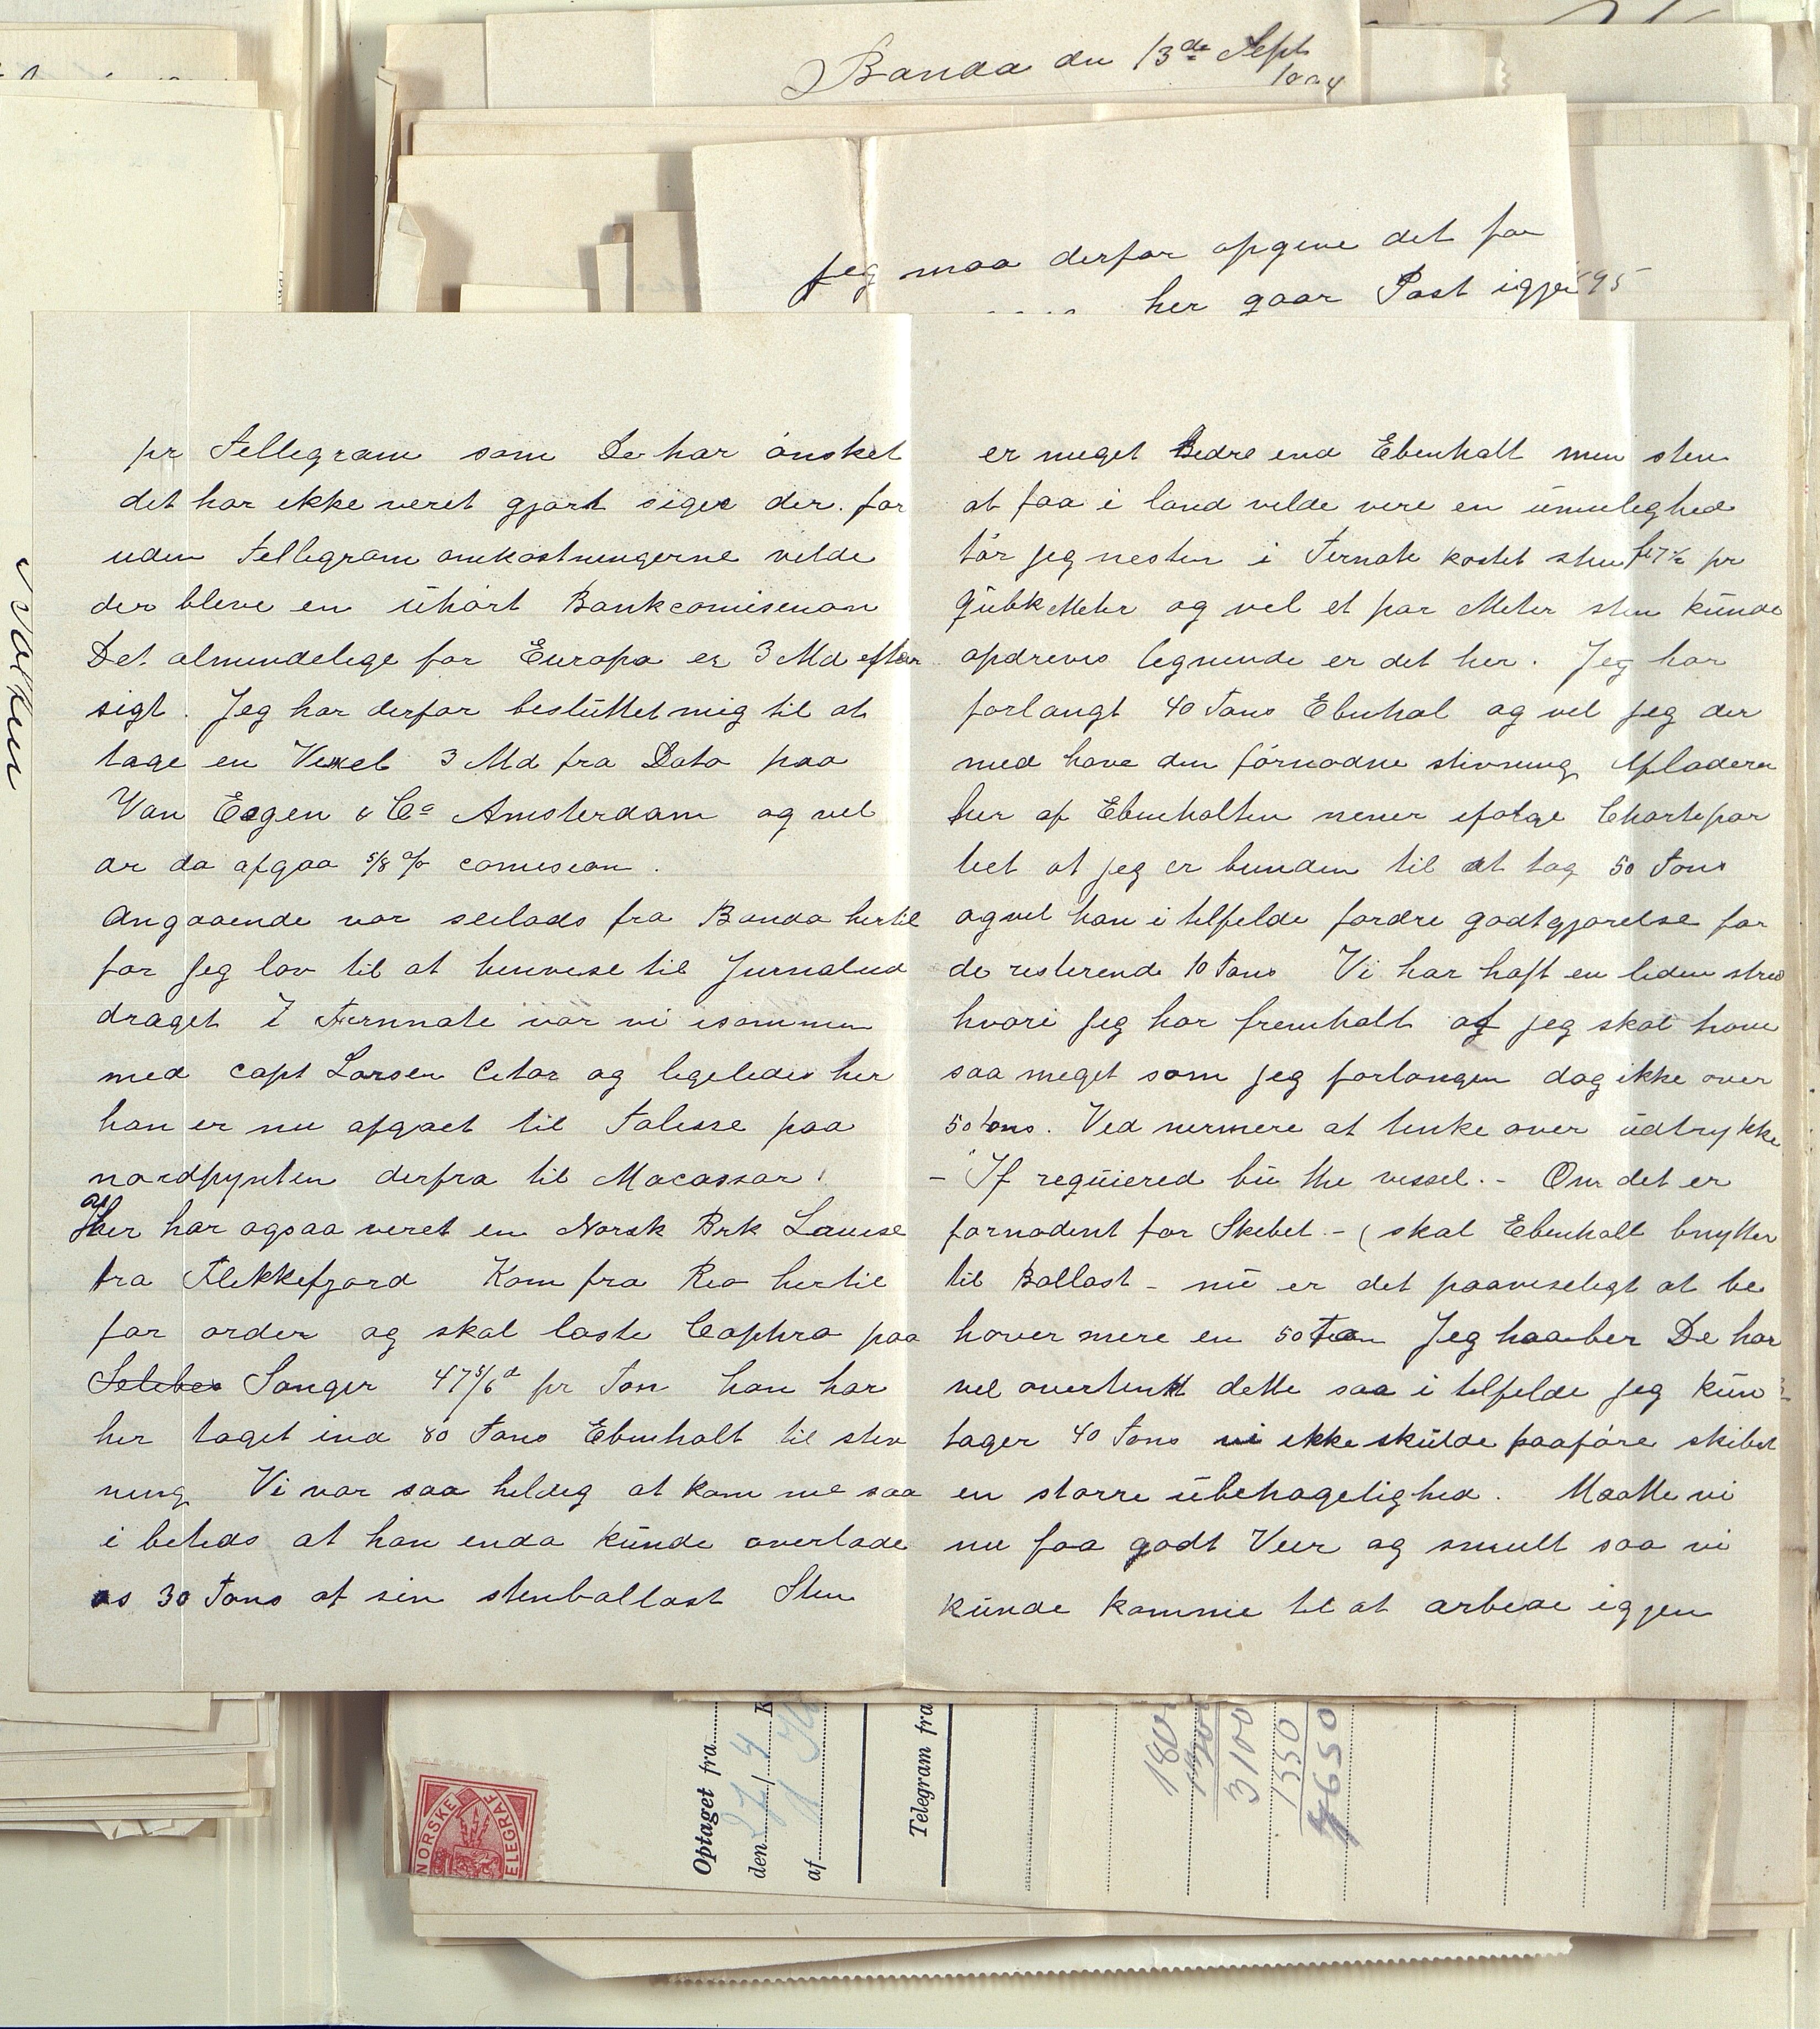 Banda den 13de Sept
Jeg maa derfor opgive det for
her gaar Post igjen 95
pr Tellegram som De har ønsket
det har ikke veret gjort siges der. for
uden Tellegram omkostningerne vilde
der bleve en uhørt Bankcomisenon
Det almindelige for Europa er 3 Md efter
sigt. Jeg har derfor besluttet mig til at
tage en Vexel 3 Md fra Dato paa
Van Eegen & Co Amsterdam og vel
der da afgaa 5/8 % comision.
Angaaende vor seilads fra Banda hertil
far Jeg lov til at henvise til Jurnalud
draget I Ternnate var vi isammen
med Capt Larsen Citar og ligeledes her
han er nu afgaet til Talisse paa
nordpynten derfra til Macassar.
Her har ogsaa veret en Norsk Brk Louise
fra Flekkefjord Kom fra Rio hertil
for order og skal laste Cophra paa
Selebes Sanger 47s/6d pr Ton han har
her taget ind 80 Tons Ebenholt til stiv
ning Vi var saa heldig at kom me saa
i betids at han enda kunde overlade
os 30 Tons af sin stenballast Sten
er meget Bedre end Ebenholt men sten
at faa i land vilde vere en umulighed
tør jeg nesten i Ternate kostet sten f 7½ pr
Qubk Meter og vel et par Meter sten kunde
opdreves lignende er det her. Jeg har
forlangt 40 Tons Ebenhol og vel jeg der
med have den fornødne stivning Afladeren
her af Ebenholten mener ifølge Chartepar
tiet at jeg er bunden til at tag 50 Tons
og vel han i tilfelde fordre godtgjørelse for
de resterende 10 Tons Vi har haft en liden strid
hvori jeg har fremholt at jeg skal have
saa meget som jeg forlangen dog ikke over
50 tons. Ved nermere at tenke over udtrykke
- "If requiered bu the vessel. - Om det er
fornødent for Skibet - (skal Ebenholt bnyttes
til Ballast - nu er det paaviseligt at be
høver mere en 50 Ton Jeg haaber De har
vel overtenkt dette saa i tilfelde jeg kun
tager 40 Tons vi ikke skulde paaføre skibet
en større ubehagelighed. Maatte vi
nu faa godt Veir og smult saa vi
kunde komme til at arbeide igjen
Optaget fra
den 27/4 K
af
Telegram fra
180
3100
1550
4650
NORSKE
TELEGRAF